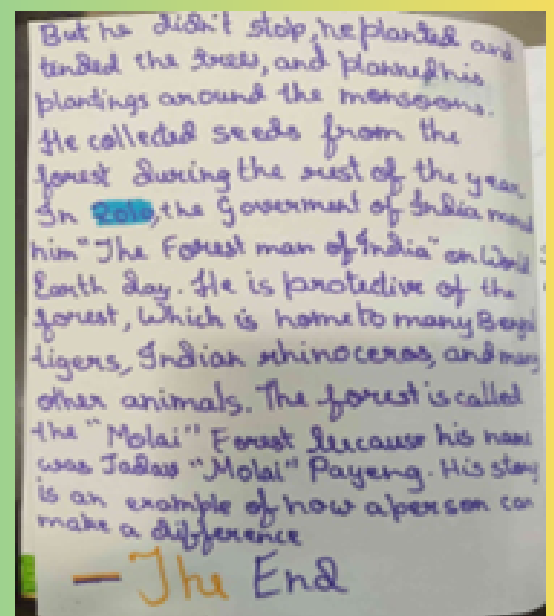 But he didn't stop, he planted and
tended the trees, and planned his
plantings around the monsoons.
He collected seeds from the
forest during the rest of the year
In 2010, the Goverment of India
him "The Forest man of India" on World
Earth day. He is protective of the
forest, Which is home to many Bengal
tigers, Indian rhinoceros, and many
other animals. The forest is called
the "Molai" Forest because his name
was Jadav "Molai" Payeng. His story
is an example of how a person can
make a difference
— The End